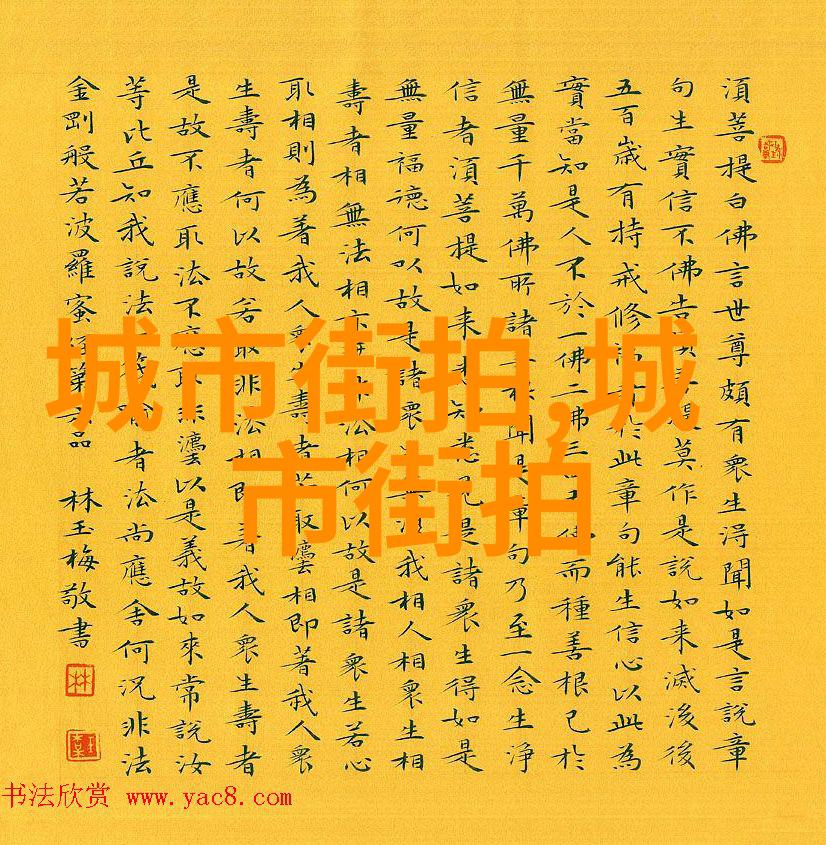 須菩提白佛言世尊頗有衆生淂聞如是言說章
句生實信不佛告提莫作是說如来滅後後
五百歲有持戒修於此章句能生信心以此為
實當知是人不於一佛二佛三而種善根已於
無量千萬佛所諸根聞是章句乃至一念生淨
信者須菩提如来悉知悉見是諸衆生得如是
無量福德何以故是諸衆我相人相衆生相
壽者相無法相非法相何以故是諸衆生若心
取相則為著我人衆生壽者若取灋相即著我人衆
生壽者何以故若取非法相即著我人衆生壽者
是故不應取法不應取非灋以是義故如來常說汝
等比丘知我說法筏喻者法尚應舍何況非法
金剛般若波羅蜜經第六品 林玉梅敬書
林
城市街拍,城
市街拍
书法欣赏 www.yac8.com